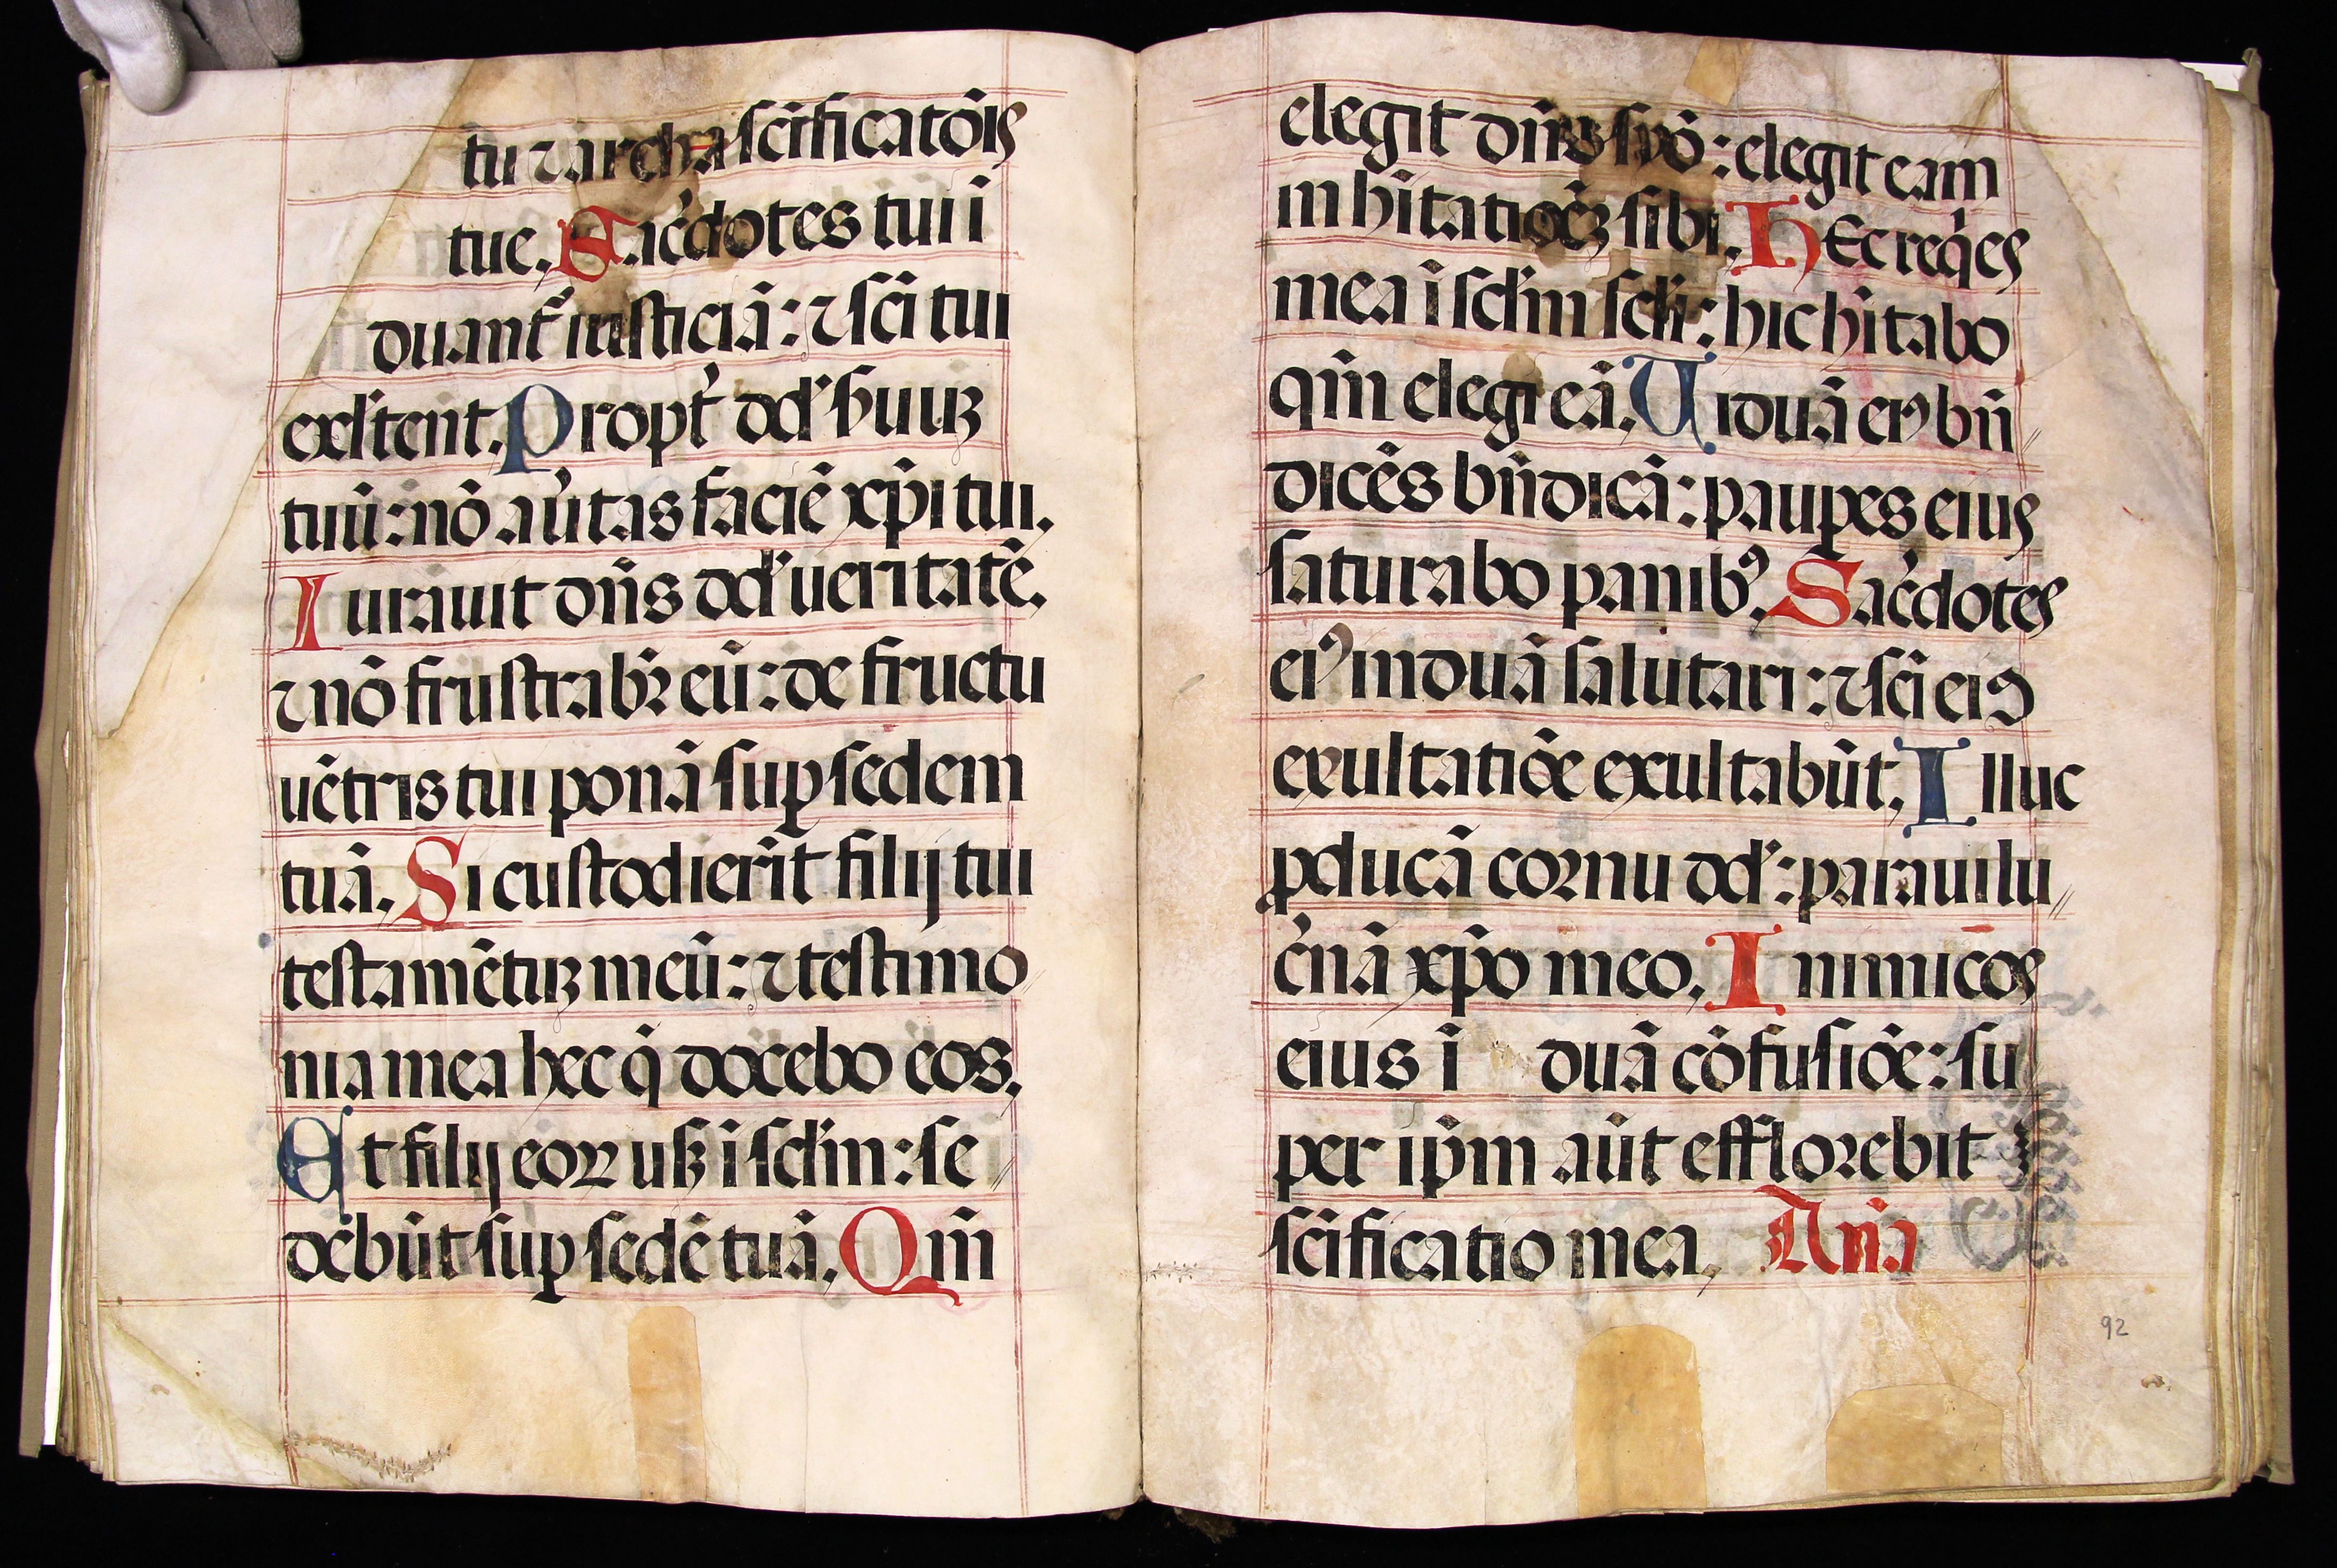 tu ⁊ archa sc̄ificatōis
tue. Sac̄dotes tui ī
duant᷑ iusticiā: ⁊ sc̄i tui
exl̄tent. Propt̄ dd̄ ẜuuꝫ
tuū: nō aūtas faciē xp̄i tui.
Iurauit dn̄s dd̄ ueritatē.
⁊ nō frustrab᷑ eū: de fructu
uētris tui ponā suꝑ sedem
tuā. Si custodierīt filij tui
testamētuꝫ meū: ⁊ testimo
nia mea hec q̄ docebo eos.
Et filij eoꝝ usꝫ ī scl̄m: se
debūt suꝑ sedē tuā. Qm̄
elegit dn̄s syō: elegit eam
in hītatiōeꝫ sibi. Hec req̄es
mea ī scl̄m scl̄i: hic hītabo
qm̄ elegi eā. Uiduā eiꝰ bn̄
dicēs bn̄dicā: pauꝑes eius
saturabo panibꝰ. Sac̄dotes
eiꝰ induā salutari: ⁊ sc̄i eiꝰ
exultatiōe exultabūt. Illuc
ꝓducā cornu dd̄: paraui lu
c̄nā xp̄o meo. Inimicos
eius ī duā cōfusiōe: su
per ip̄m aūt efflorebit
sc̄ificatio mea. An̄a
92